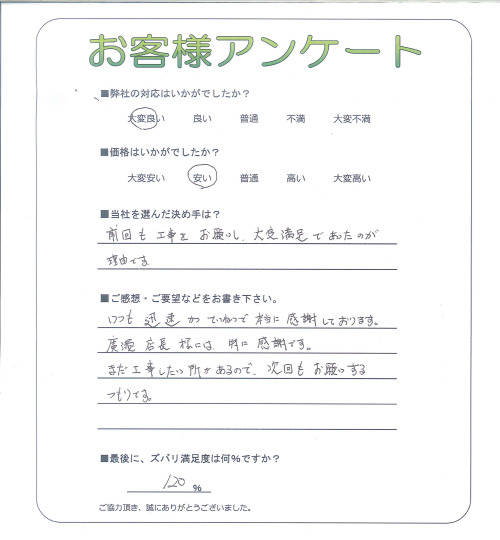 お客様アンケート
■弊社の対応はいかがでしたか？
大変良い 良い 普通 不満 大変不満
■価格はいかがでしたか？
大変安い 安い 普通 高い 大変高い
■当社を選んだ決め手は？
前回も工事をお願いし、大変満足であったのが
理由です。
■ご感想・ご要望などをお書き下さい。
いつも迅速かつていねいで本当に感謝しております。
廣瀬店長様には、特に感謝です。
まだ工事したい所があるので、次回もお願いする
つもりです。
■最後に、ズバリ満足度は何%ですか？
120 %
ご協力頂き、誠にありがとうございました。